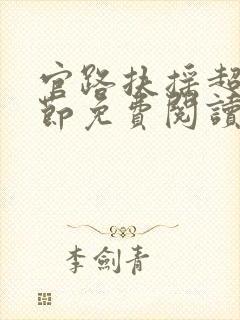 官路扶搖超
節免費閱讀
李劍青